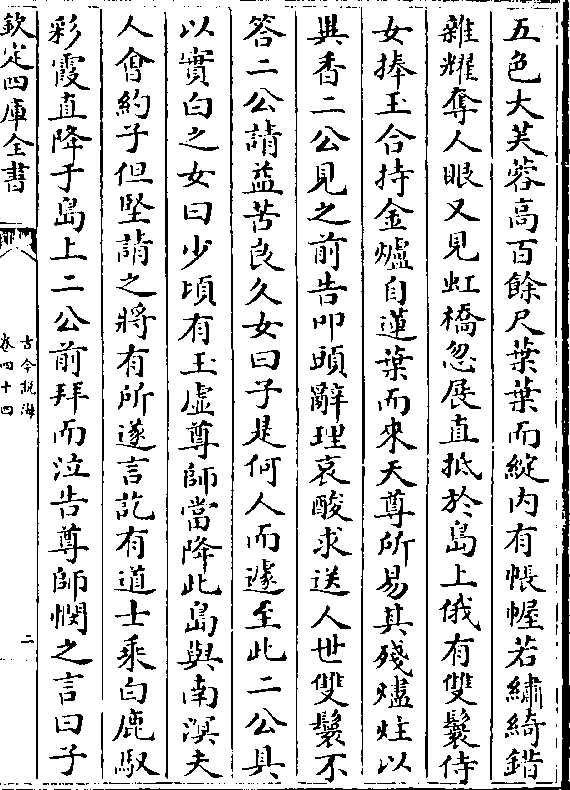 五色大芙蓉高百餘尺葉葉而綻内有帳幄若繡綺錯
雜耀奪人眼又見虹橋忽展直抵於島上俄有雙鬟侍
女捧玉合持金爐自蓮葉而來天尊所易其殘燼炷以
異香二公見之前告叩頭辭理哀酸求送人世雙鬟不
答二公請益苦良久女曰子是何人而遽至此二公具
以實白之女曰少頃有玉虛尊師當降此島與南溟夫
人會約子但堅請之將有所遂言訖有道士乘白鹿馭
彩霞直降于島上二公前拜而泣告尊師憫之言曰子
欽定四庫全書
古今説海
卷四十四
二